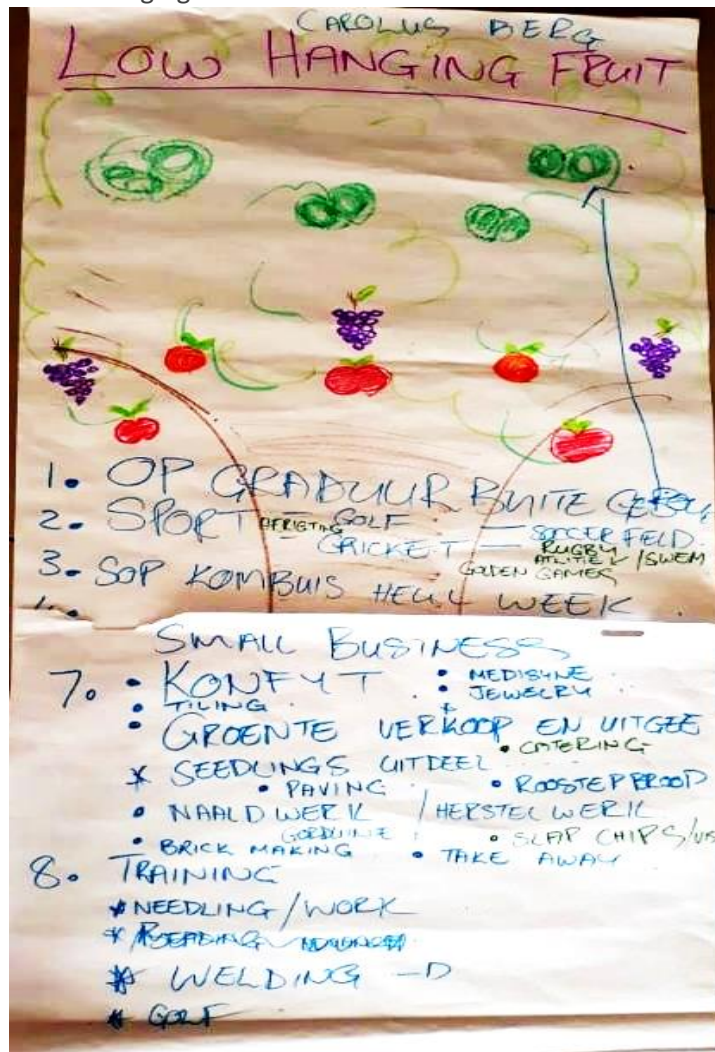 CAROLUS BERG
LOW HANGING FRUIT
1. OP GRADUUR BUITE GEBOU
2. SPORT AFRIGTING GOLF — SOCCER FELD
CRICKET — RUGBY
ATLITIEK /SWEM
GOLDEN GAMES
3. SOP KOMBUIS HEUL WEEK
SMALL BUSINESS
7. • KONFYT • MEDISYNE
• TILING • JEWELRY
• GROENTE VERKOOP EN UITGEE
• CATERING
* SEEDLINGS UITDEEL
• PAVING • ROOSTERBROOD
• NAALDWERK /HERSTEL WERK
GORDUINE
• BRICK MAKING • SLAP CHIPS/VIS
• TAKE AWAY
8. TRAINING
* NEEDLING/WORK
* BEADING
* WELDING -D
* GOLF